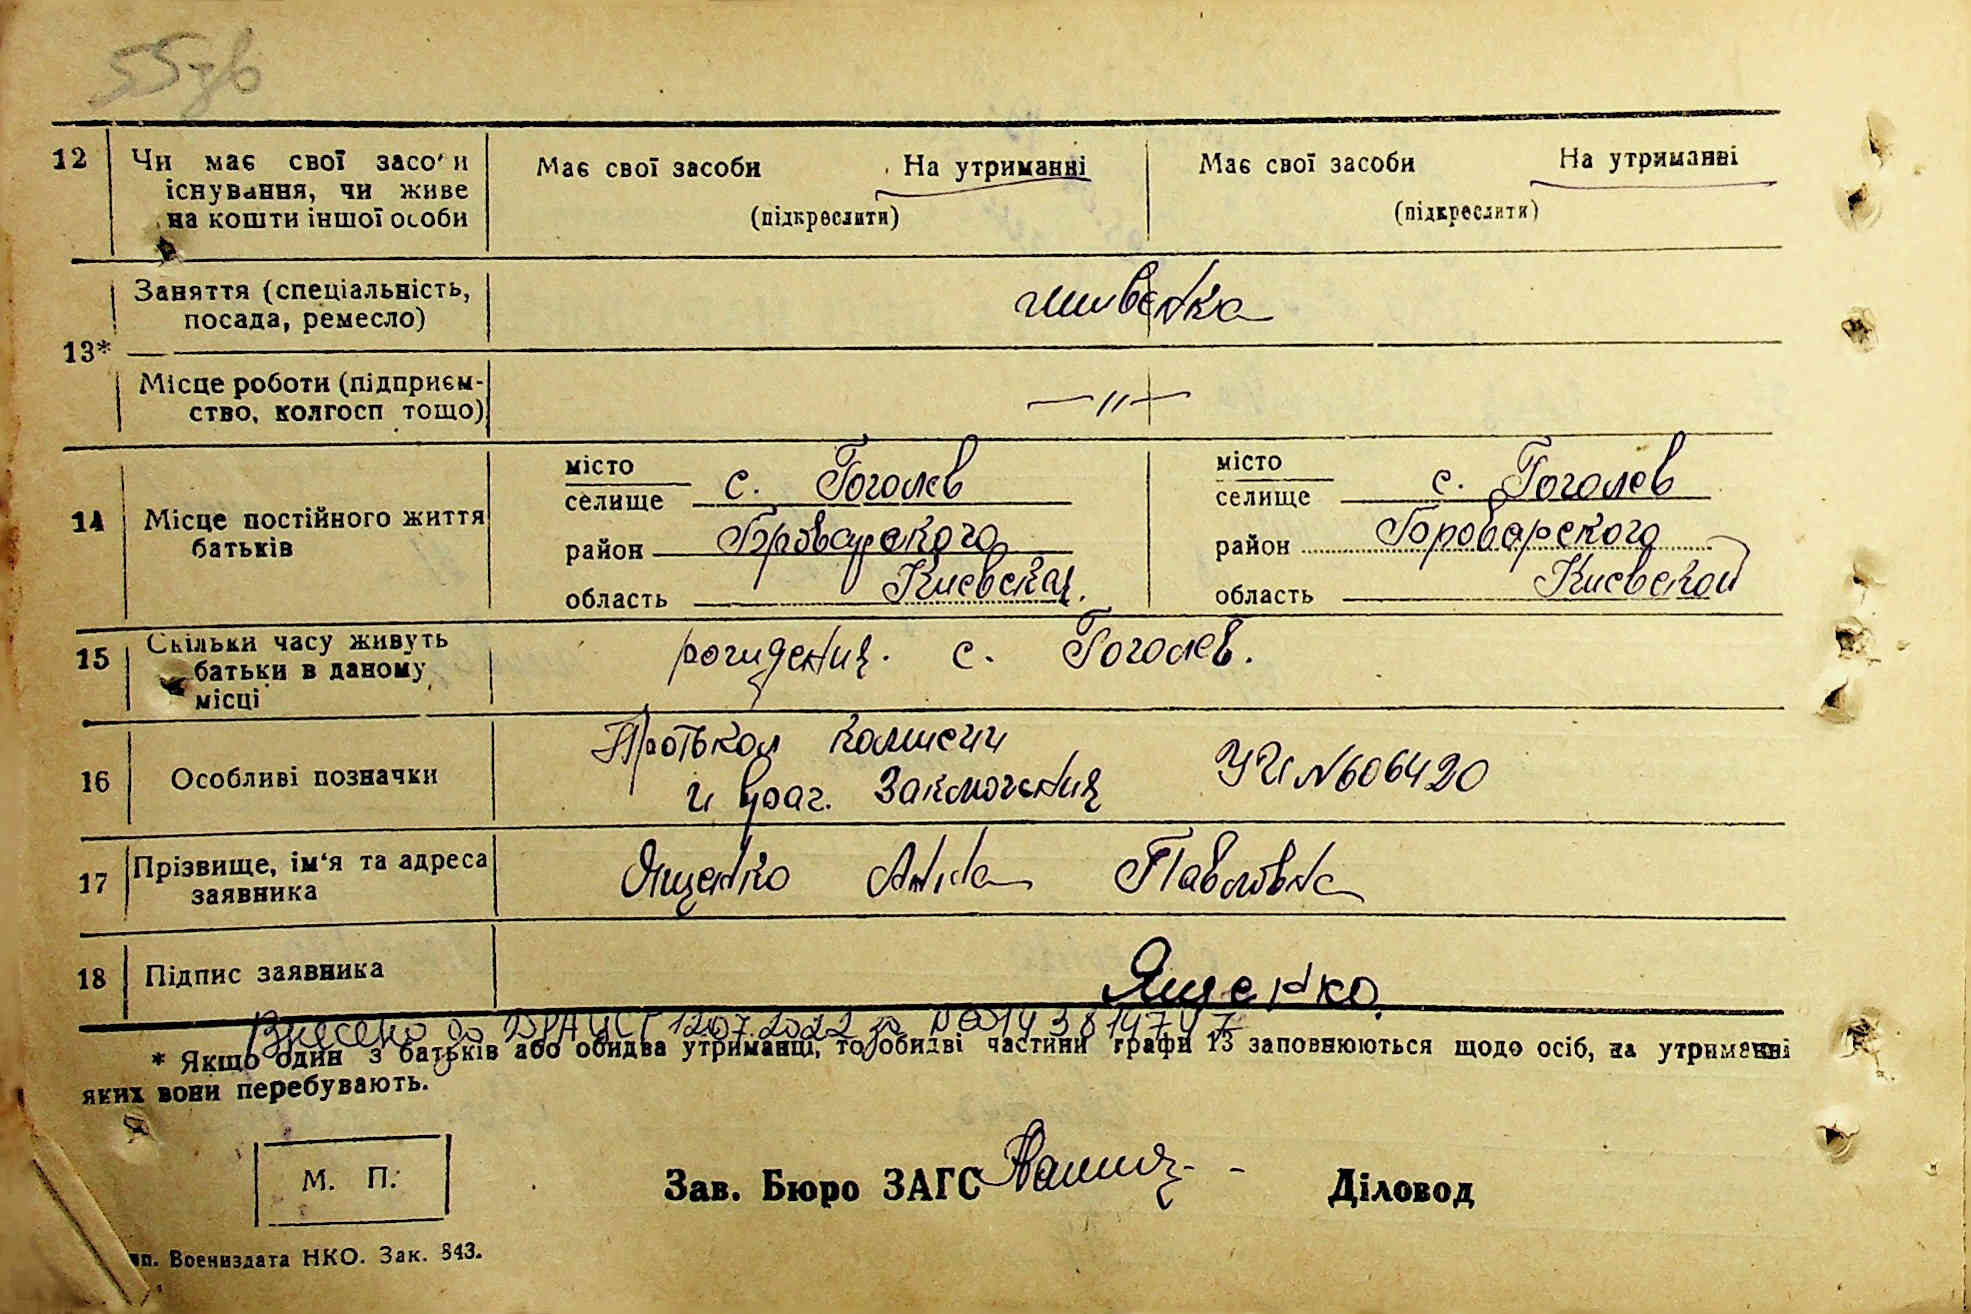 55зв
12 Чи має свої засоби Має свої засоби На утриманні Має свої засоби На утриманні
існування, чи живе
на кошти іншої особи (підкреслити) (підкреслити)
Заняття (спеціальність,
посада, ремесло)
13*
Місце роботи (підприєм-
ство, колгосп тощо) —〃—
місто місто
селище с. Гоголев селище с. Гоголев
14 Місце постійного життя
батьків район Броварского район Броварского
область Киевская. область Киевской
15 Скільки часу живуть
батьки в даному
місці
рождения. с. Гоголев.
16 Особливі позначки
Протокол комисии
и врач. Заключения УЧ №606420
17 Прізвище, ім'я та адреса
заявника
Ященко Анна Павловна
18 Підпис заявника Ященко.
Внесено до ДРАЦСГ 12.07.2022 за
* Якщо один з батьків або обидва утриманці, то обидві частини графи 13 заповнюються щодо осіб, на утриманні
яких вони перебувають.
М. П.
Зав. Бюро ЗАГС Діловод
Воениздата НКО. Зак. 843.